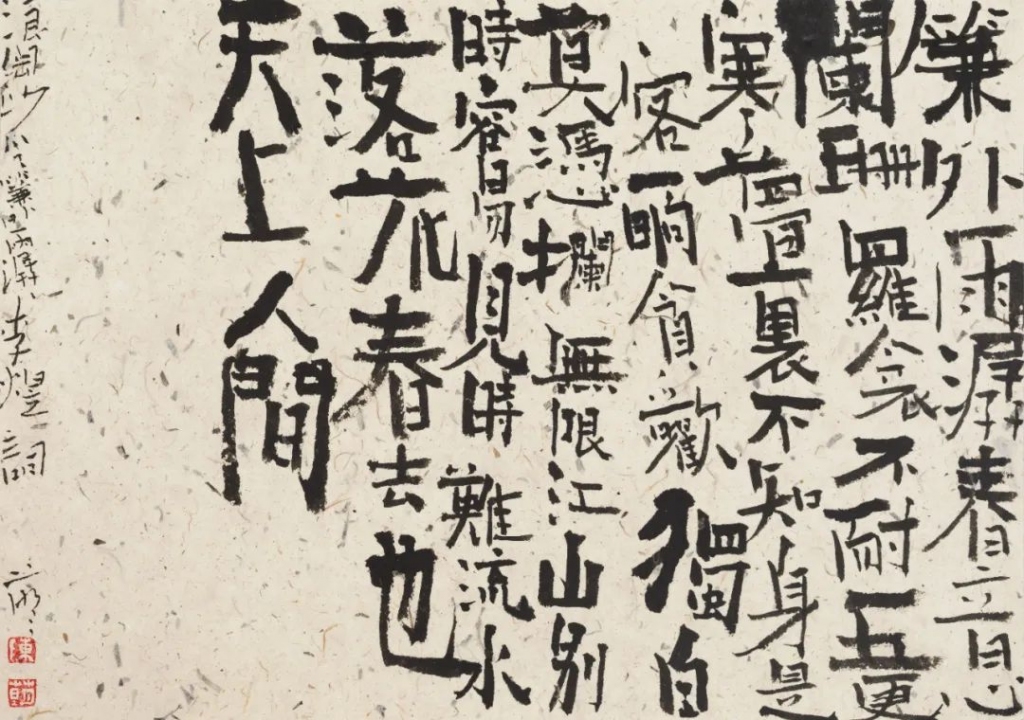 簾外雨潺春意
闌珊羅衾不耐五更
寒夢裏不知身是
客一晌貪歡獨自
莫憑攔無限江山別
時容易見時難流水
落花春去也
天上人間
浪淘沙簾外雨潺李煜詞
陳